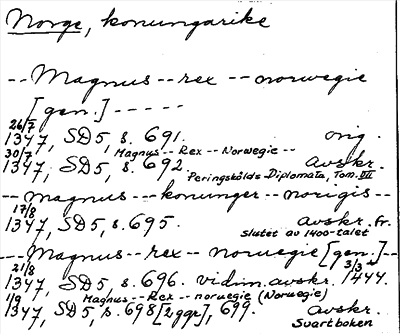 Norge, konungarike
-- Magnus -- rex -- norwegie
[gen.] -----
26/7
1347, SD5, s. 691. orig.
30/7 Magnus -- Rex -- Norwegie --
1347, SD5, s. 692 avskr.
Peringskölds Diplomata, Tom. III
-- magnus -- konunger -- norigis --
17/8
1347, SD5, s. 695. avskr. fr.
slutet av 1400-talet
-- Magnus -- rex -- noruegie [gen.] --
21/8 3/3
1347, SD5, s. 696. vidim. avskr. 1444.
1/9 Magnus -- Rex -- noruegie (Noruegie)
1347, SD5, s. 698 [2ggr], 699. avskr.
Svartboken